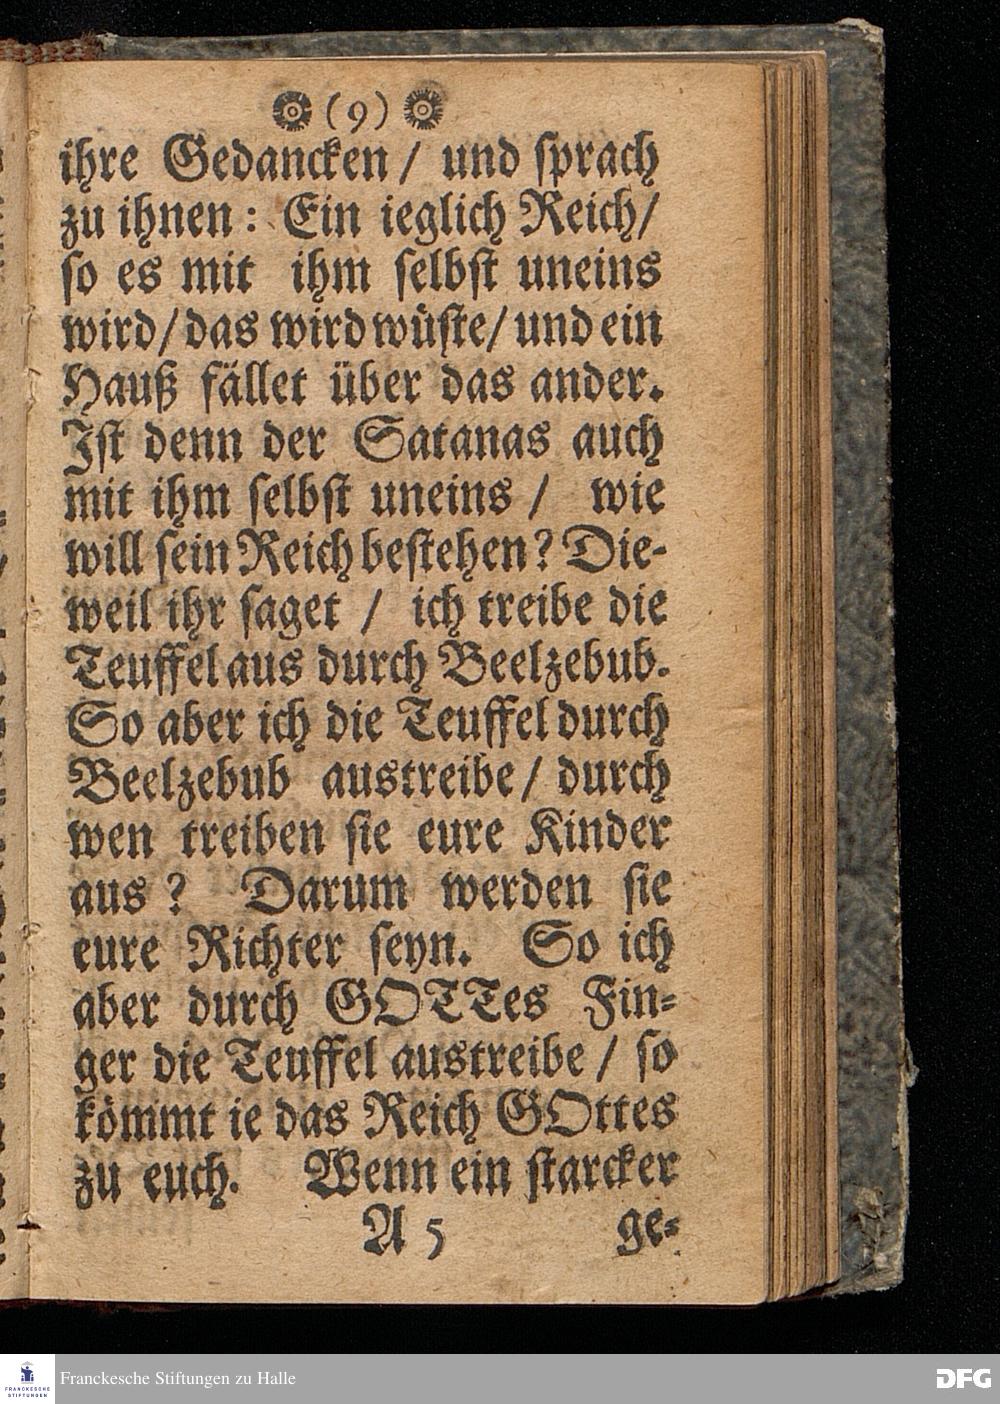 (9)
ihre Gedancken / und sprach
zu ihnen: Ein ieglich Reich/
so es mit ihm selbst uneins
wird/das wird wüste/und ein
Hauß fället über das ander.
Ist denn der Satanas auch
mit ihm selbst uneins / wie
will sein Reich bestehen? Die-
weil ihr saget / ich treibe die
Teuffel aus durch Beelzebub.
So aber ich die Teuffel durch
Beelzebub austreibe / durch
wen treiben sie eure Kinder
aus? Darum werden sie
eure Richter seyn. So ich
aber durch GOTTes Fin-
ger die Teuffel austreibe / so
kömmt ie das Reich GOttes
zu euch. Wenn ein starcker
A 5 ge-
FRANCKESCHE
STIFTUNGEN
Franckesche Stiftungen zu Halle
DFG